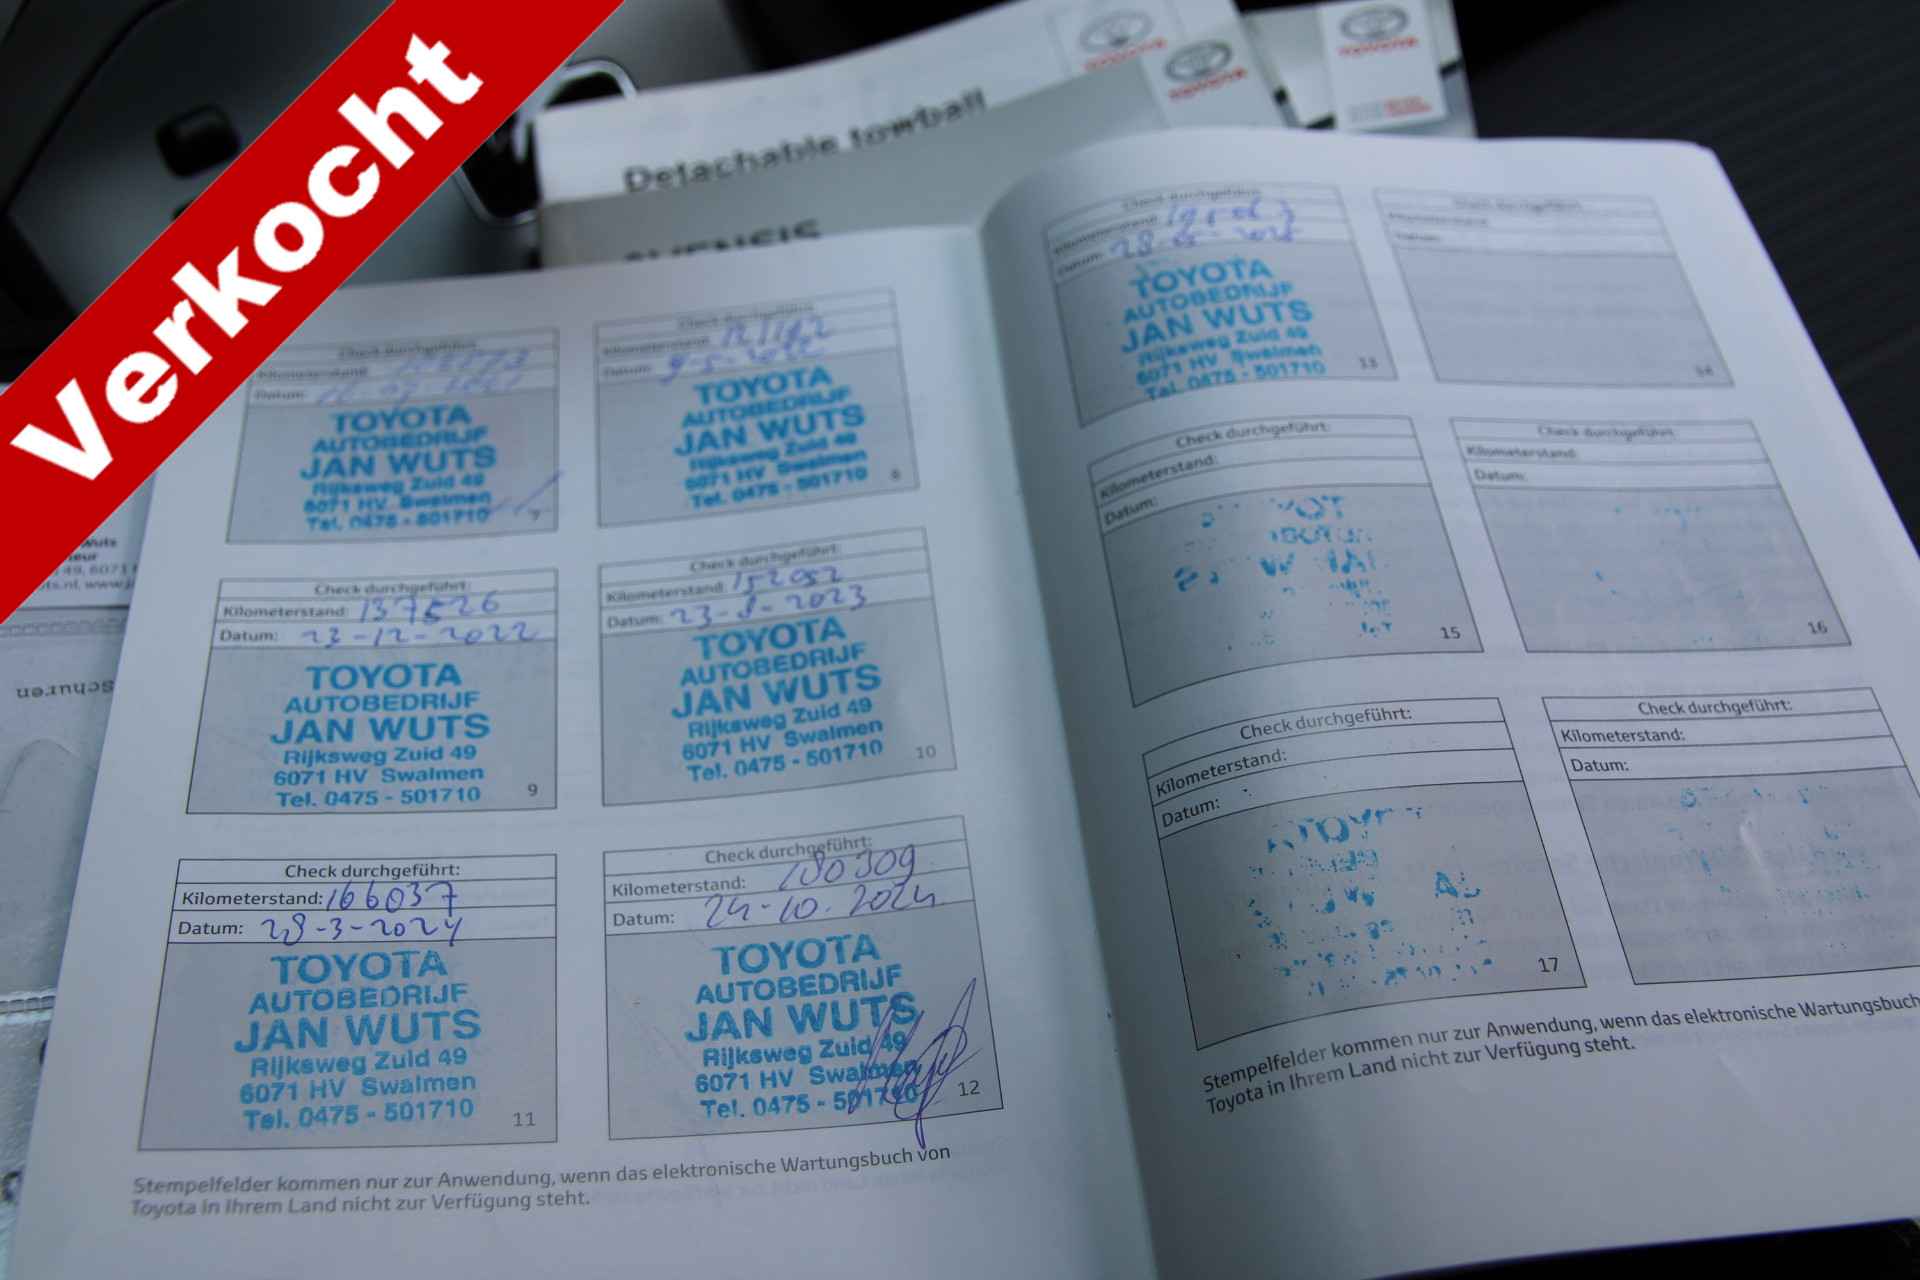 Verkocht
TOYOTA
TOYOTA
TOYOTA
Detachable towball
AVENSIS
Wuts
Schuren
Check durchgeführt:
Kilometerstand:
Datum:
TOYOTA
AUTOBEDRIJF
JAN WUTS
Rijksweg Zuid 49
6071 HV Swalmen
Tel. 0475 - 501710
7
Check durchgeführt:
Kilometerstand:
Datum: 9-5-2022
TOYOTA
AUTOBEDRIJF
JAN WUTS
Rijksweg Zuid 49
6071 HV Swalmen
Tel. 0475 - 501710
8
Check durchgeführt:
Kilometerstand: 137526
Datum: 23-12-2022
TOYOTA
AUTOBEDRIJF
JAN WUTS
Rijksweg Zuid 49
6071 HV Swalmen
Tel. 0475 - 501710
9
Check durchgeführt:
Kilometerstand: 152052
Datum: 23-8-2023
TOYOTA
AUTOBEDRIJF
JAN WUTS
Rijksweg Zuid 49
6071 HV Swalmen
Tel. 0475 - 501710
10
Check durchgeführt:
Kilometerstand: 166037
Datum: 28-3-2024
TOYOTA
AUTOBEDRIJF
JAN WUTS
Rijksweg Zuid 49
6071 HV Swalmen
Tel. 0475 - 501710
11
Check durchgeführt:
Kilometerstand: 180309
Datum: 24-10-2024
TOYOTA
AUTOBEDRIJF
JAN WUTS
Rijksweg Zuid 49
6071 HV Swalmen
Tel. 0475 - 501710
12
Stempelfelder kommen nur zur Anwendung, wenn das elektronische Wartungsbuch von
Toyota in Ihrem Land nicht zur Verfügung steht.
Check durchgeführt:
Kilometerstand:
Datum:
TOYOTA
AUTOBEDRIJF
JAN WUTS
Rijksweg Zuid 49
6071 HV Swalmen
Tel. 0475 - 501710
13
Check durchgeführt:
Kilometerstand:
Datum:
14
Check durchgeführt:
Kilometerstand:
Datum:
15
Check durchgeführt:
Kilometerstand:
Datum:
16
Check durchgeführt:
Kilometerstand:
Datum:
17
Check durchgeführt:
Kilometerstand:
Datum:
Stempelfelder kommen nur zur Anwendung, wenn das elektronische Wartungsbuch
Toyota in Ihrem Land nicht zur Verfügung steht.